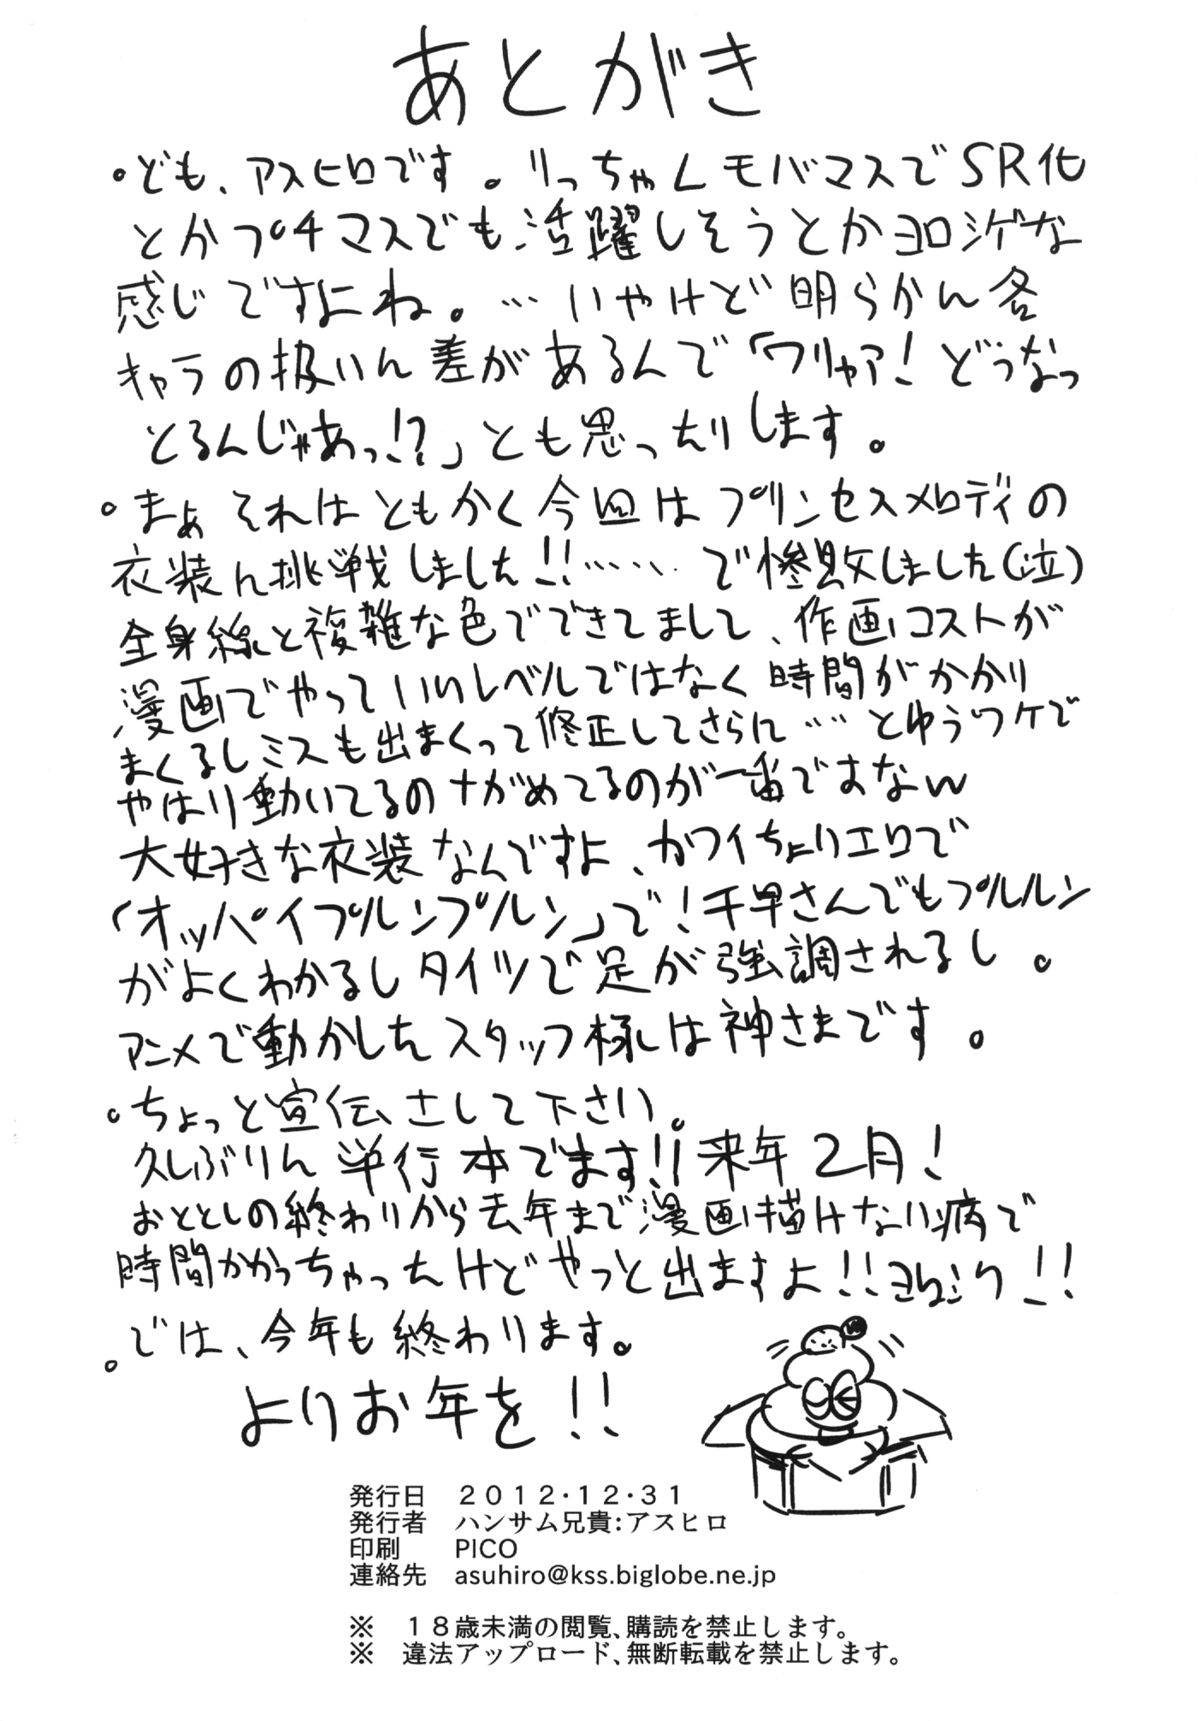 あとがき
。ども、アスヒロです。りっちゃんモバマスでSR化
とかプチマスでも活躍しそうとかヨロシゲな
感じですよね。…いやけど明らかに各
キャラの扱いに差があるんで「ワリャァ!どうなっ
とるんじゃあっ!?」とも思ったりします。
。まぁそれはともかく今回はプリンセスメロディの
衣装に挑戦しました!!……で惨敗しました(泣)
全身線と複雑な色でできてまして、作画コストが
漫画でやっていいレベルではなく時間がかかり
まくるしミスも出まくって修正してさらに……とゆうワケで
やはり動いてるのナガめてるのが一番ですなw
大好きな衣装なんですよ、カワイちょりエロで
「オッパイプルンプルン」で!千早さんでもプルルン
がよくわかるしタイツで足が強調されるし。
アニメで動かしたスタッフ様は神さまです。
。ちょっと宣伝さして下さい。
久しぶりに単行本でます!!来年2月!
おととしの終わりから去年まで漫画描けない病で
時間かかっちゃったけどやっと出ますよ!!ヨロシク!!
。では、今年も終わります。
よりお年を!!
発行日 2012・12・31
発行者 ハンサム兄貴:アスヒロ
印刷 PICO
連絡先 asuhiro@kss.biglobe.ne.jp
※ 18歳未満の閲覧、購読を禁止します。
※ 違法アップロード、無断転載を禁止します。